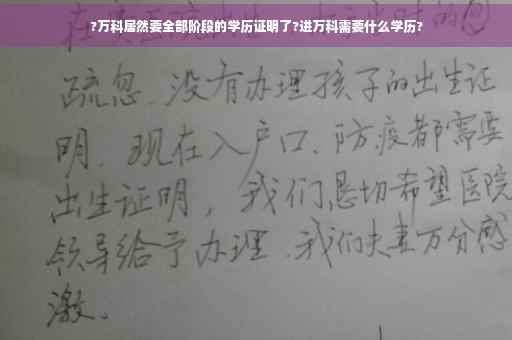 ?万科居然要全部阶段的学历证明了?进万科需要什么学历?
疏忽、没有办理孩子的出生证
明、现在入户口、防疫都需要
出生证明，我们恳切希望医院
领导给予办理、我们夫妻万分感
激。